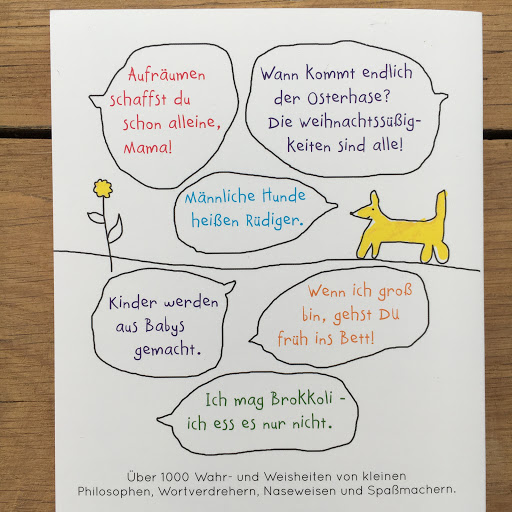 Aufräumen
schaffst du
schon alleine,
Mama!
Wann kommt endlich
der Osterhase?
Die weihnachtssüßig-
keiten sind alle!
Männliche Hunde
heißen Rüdiger.
Kinder werden
aus Babys
gemacht.
Wenn ich groß
bin, gehst Du
früh ins Bett!
Ich mag Brokkoli -
ich ess es nur nicht.
Über 1000 Wahr- und Weisheiten von kleinen
Philosophen, Wortverdrehern, Naseweisen und Spaßmachern.